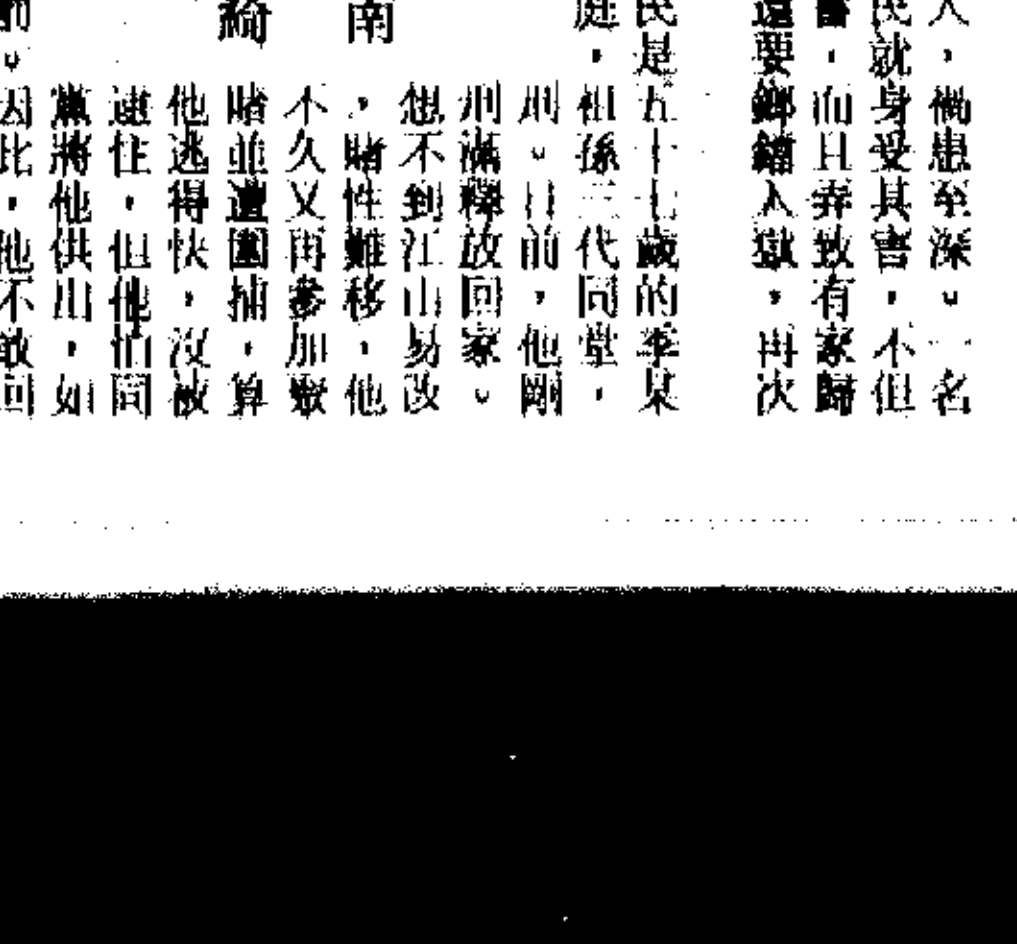 人，懾患至深。一名
民就身受其害，不但
，而且弄致有家歸
還要鄉鐺入獄，再次
民是五十七歲的李某
庭，祖孫三代同堂，
刑。日前，他剛
刑滿釋放回家。
想不到江山易改
，賭性難移，他
不久又再參加聚
賭並遭圍捕，算
他逃得快，沒被
逮住，但他怕同
黨將他供出，如
因此，他不敢回
南
綺